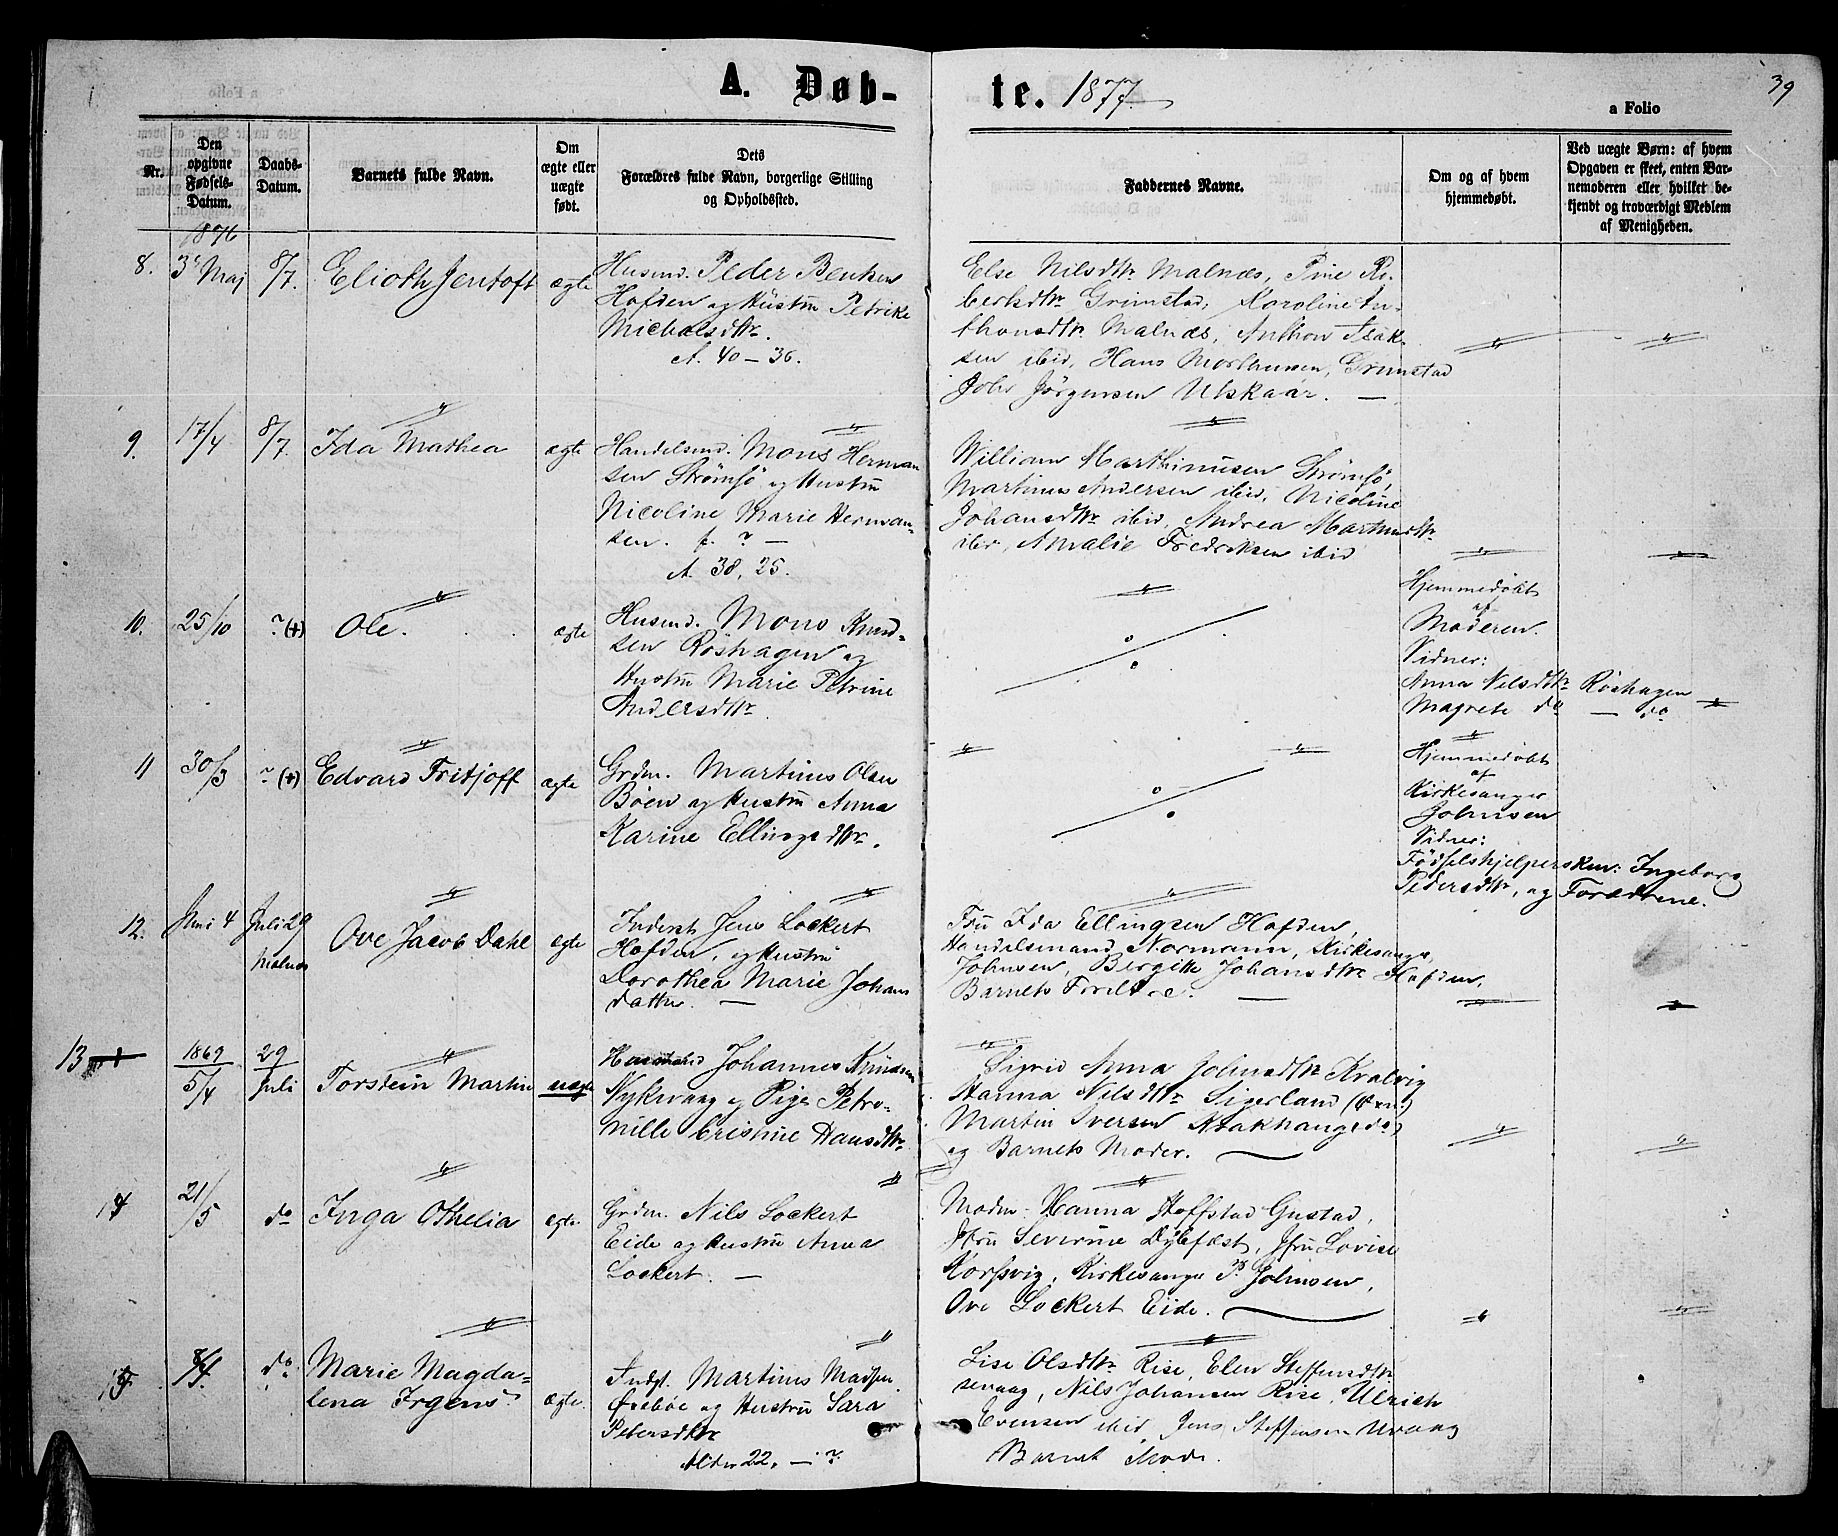 A. Døb-
te. 1877.
39
a Folio
Nr.
Den opgivne Fødsels-Datum.
Daabs-Datum.
Barnets fulde Navn.
Om ægte eller uægte født.
Dets
Forældres fulde Navn, borgerlige Stilling
og Opholdssted.
Faddernes Navne.
Om og af hvem
hjemmedøbt.
Ved uægte Børn: af hvem
Opgaven er skeet, enten Bar-
nemoderen eller hvilket be-
kjendt og troværdigt Medlem
af Menigheden.
1876
8. 3' Maj 8/7. Elioth Jentoft ægte
Husmd. Peder Benksen
Hofden og Hustru Petrike
Michalsdtr.
A. 40 - 36.
Else Nilsdtr Malnæs, Pine Ro-
bertsdtr Grimstad, Karoline An-
thonsdtr Malnæs, Anthon Isak-
sen ibid, Hans Morthensen, Grimstad
Johs Jörgensen Ulskaar. —
9. 17/4 8/7. Ida Mathea ægte
Handelsmd. Mons Herman
sen Strömsö og Hustru
Nicoline Marie Herman-
sen. f. ? —
A. 38, 25.
William Marthinusen Strömsö,
Martinus Andersen ibid, Nicoline
Johansdtr ibid, Andrea Martinsdtr
ibid, Amalie Fredriksen ibid
10. 25/10 ? (+) Ole. ægte
Husmd. Mons Knud-
sen Röshagen og
Hustru Marie Petrine
Andersdtr.
Hjemmedöbt
af
Moderen.
Vidner:
Anna Nilsdtr Röshagen
Magrete do — do
11 30/3 ? (+) Edvard Fritjoff ægte
Grdm. Martinus Olsen
Böen og Hustru Anna
Karine Ellingsdtr.
Hjemmedöbt
af
Kirkesanger
Johnsen
Vidner:
Födselshjelpersken: Ingeborg
Pedersdtr, og Forældrene.
12. Juni 4 Juli 29 Malnes Ove Jacob Dahl ægte
Inderst Jens Lockert
Hofden, og Hustru
Dorothea Marie Johans
datter. —
Fru Ida Ellingsen Hofden,
Handelsmand Normann, Kirkesanger
Johnsen, Bergitte Johansdtr Hofden,
Barnets Forældre. —
13 1869 5/4 29 Juli Torstein Martin uægte
Husmand Johannes Knudsen
Nykvaag og Pige Petro-
nille Cristine Hansdtr
Sigrid Anna Johnsdtr Kralvig
Hanna Nilsdtr Sigerland
Martin Iversen
og Barnets Moder.
14 21/5 do Inga Othelia ægte
Grdm. Nils Lockert
Eide og Hustru Anna
Lockert. —
Madm. Hanna Hoffstad Gustad,
Jfru Severine Dybfest, Jfru Lovise
Korssvig, Kirkesanger P. Johnsen,
Ove Lockert Eide.
15 8/4. do Marie Magda-
lena Irgens ægte.
Indst. Martinus Madsen
og Hustru Sara
Petersdtr
Alder 22. — ?
Lise Olsdtr Rise, Elen Steffensdtr
Nils Johansen Rise, Ulrich
Evensen ibid, Jens Steffensen
Barnet Mode.